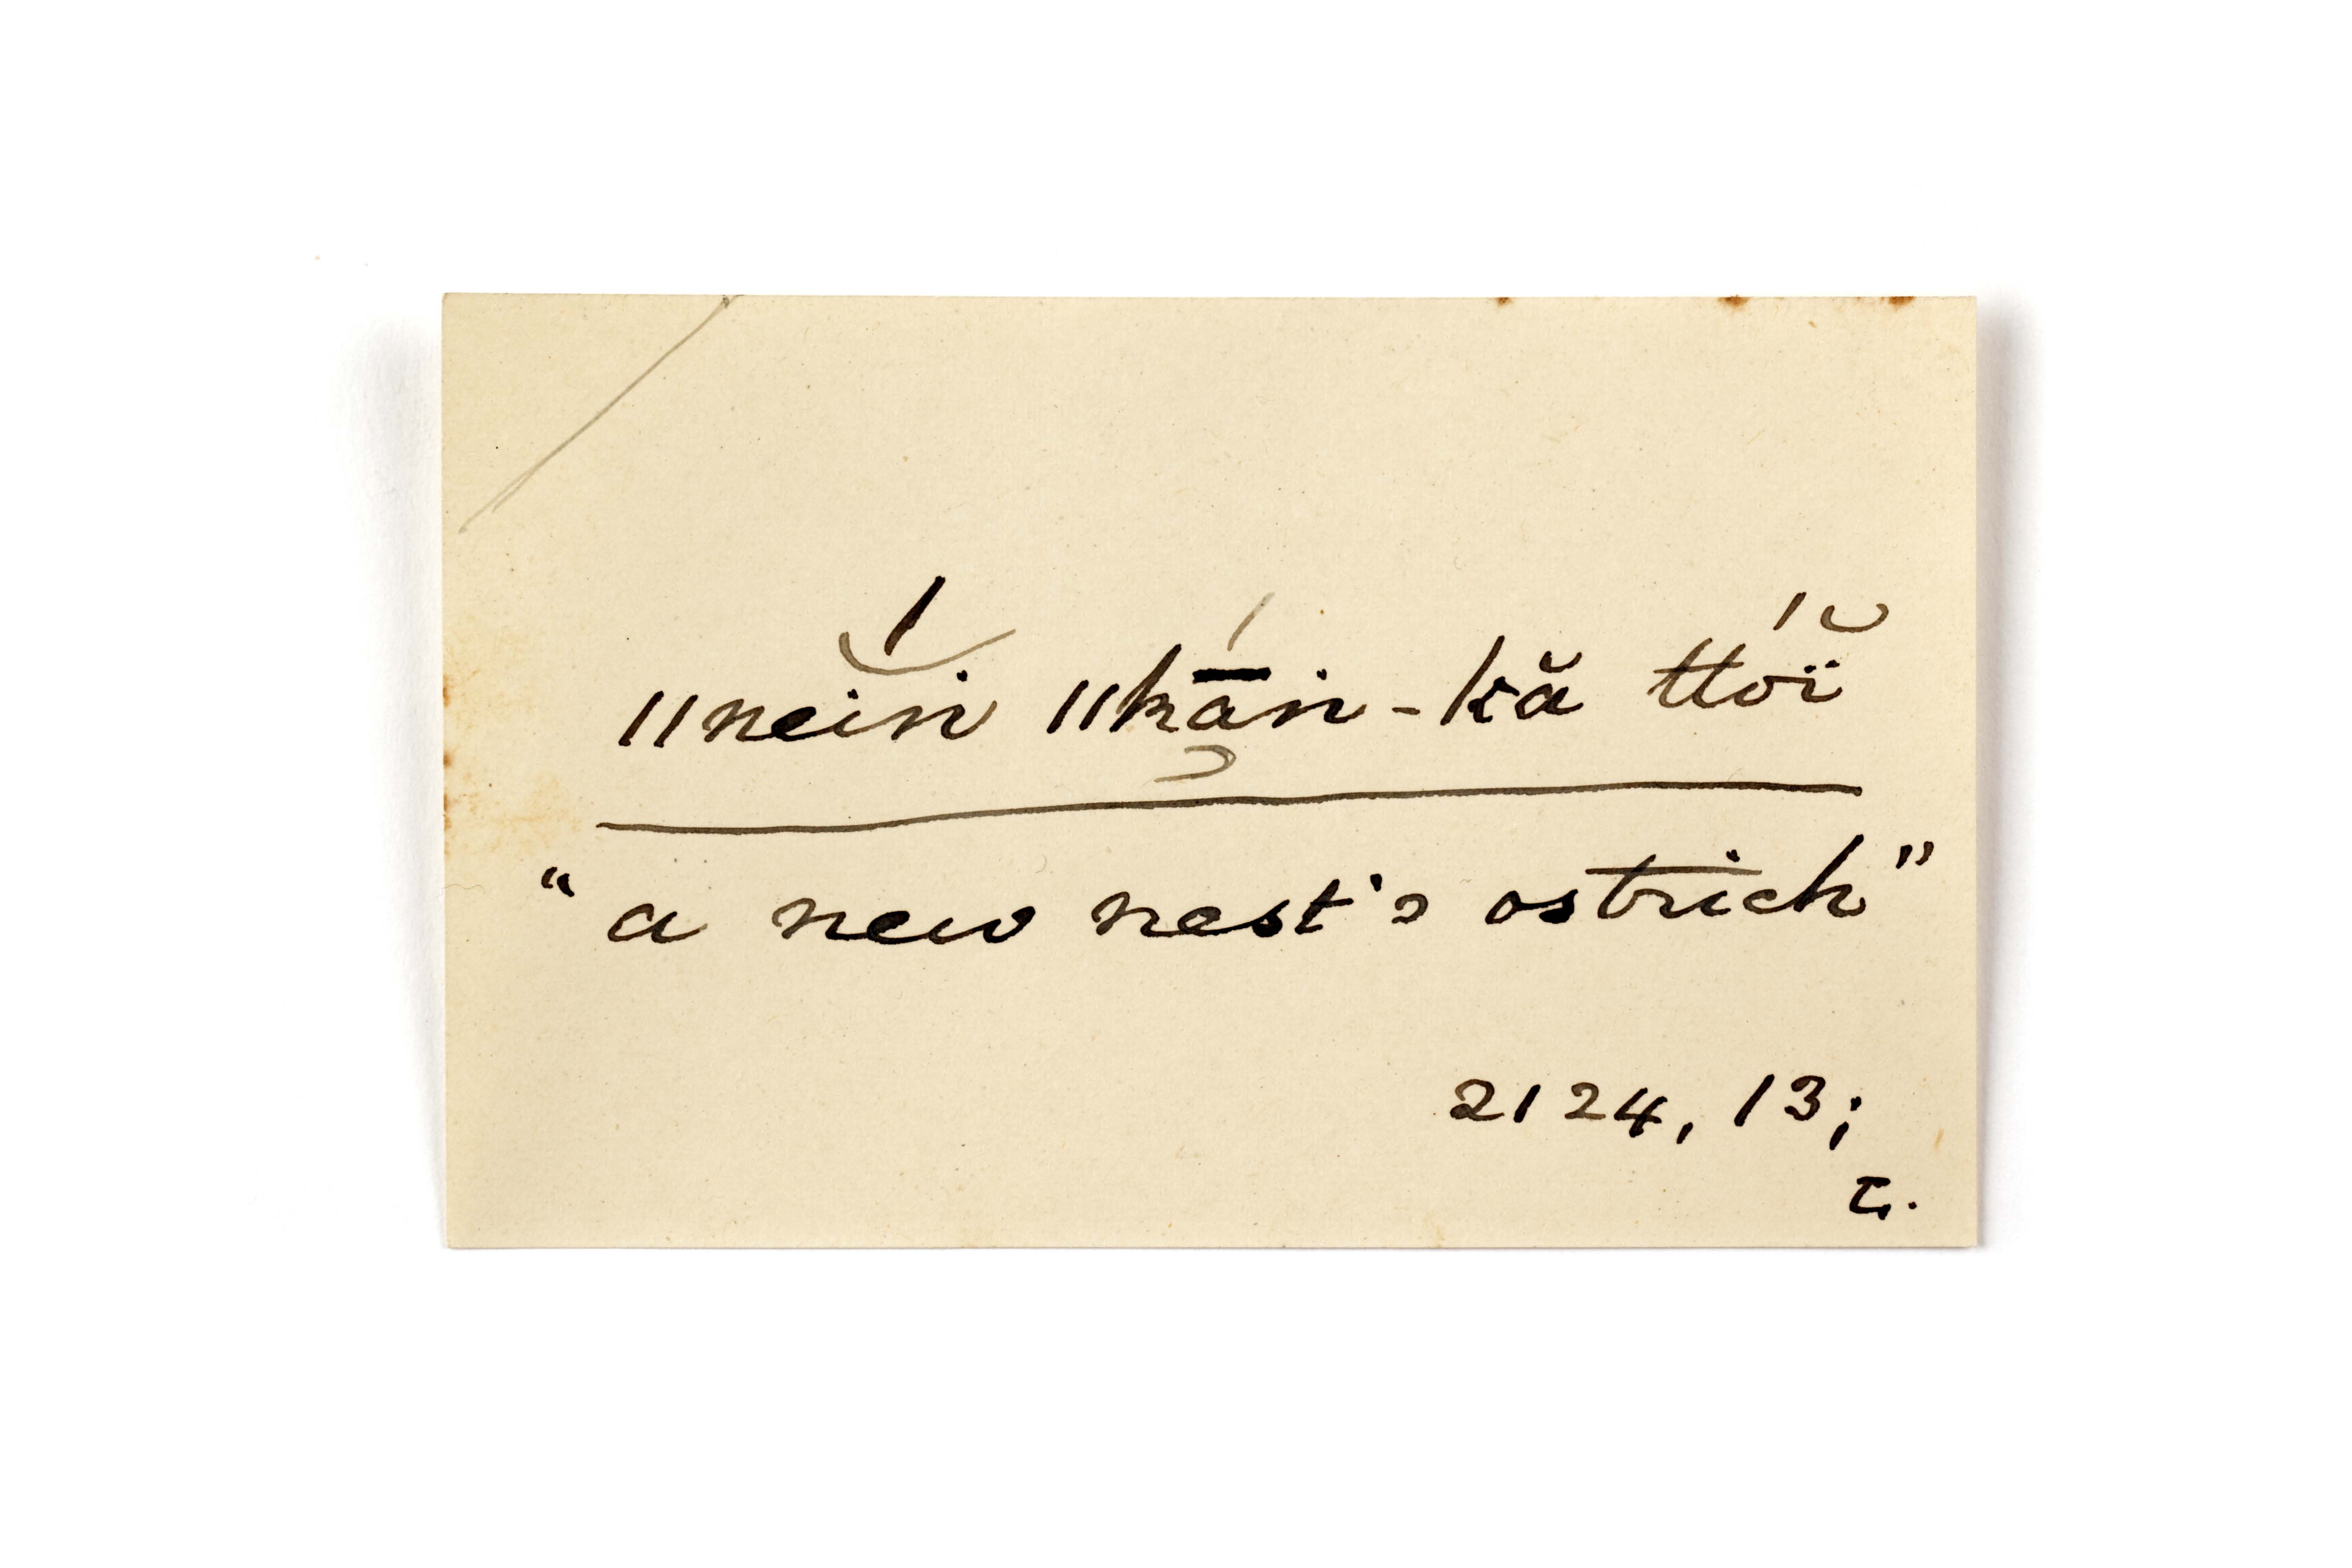 ǁnein ǁkā̰ṅ-kă ttóĭ
"a new nest's ostrich"
2124, 13;
L.